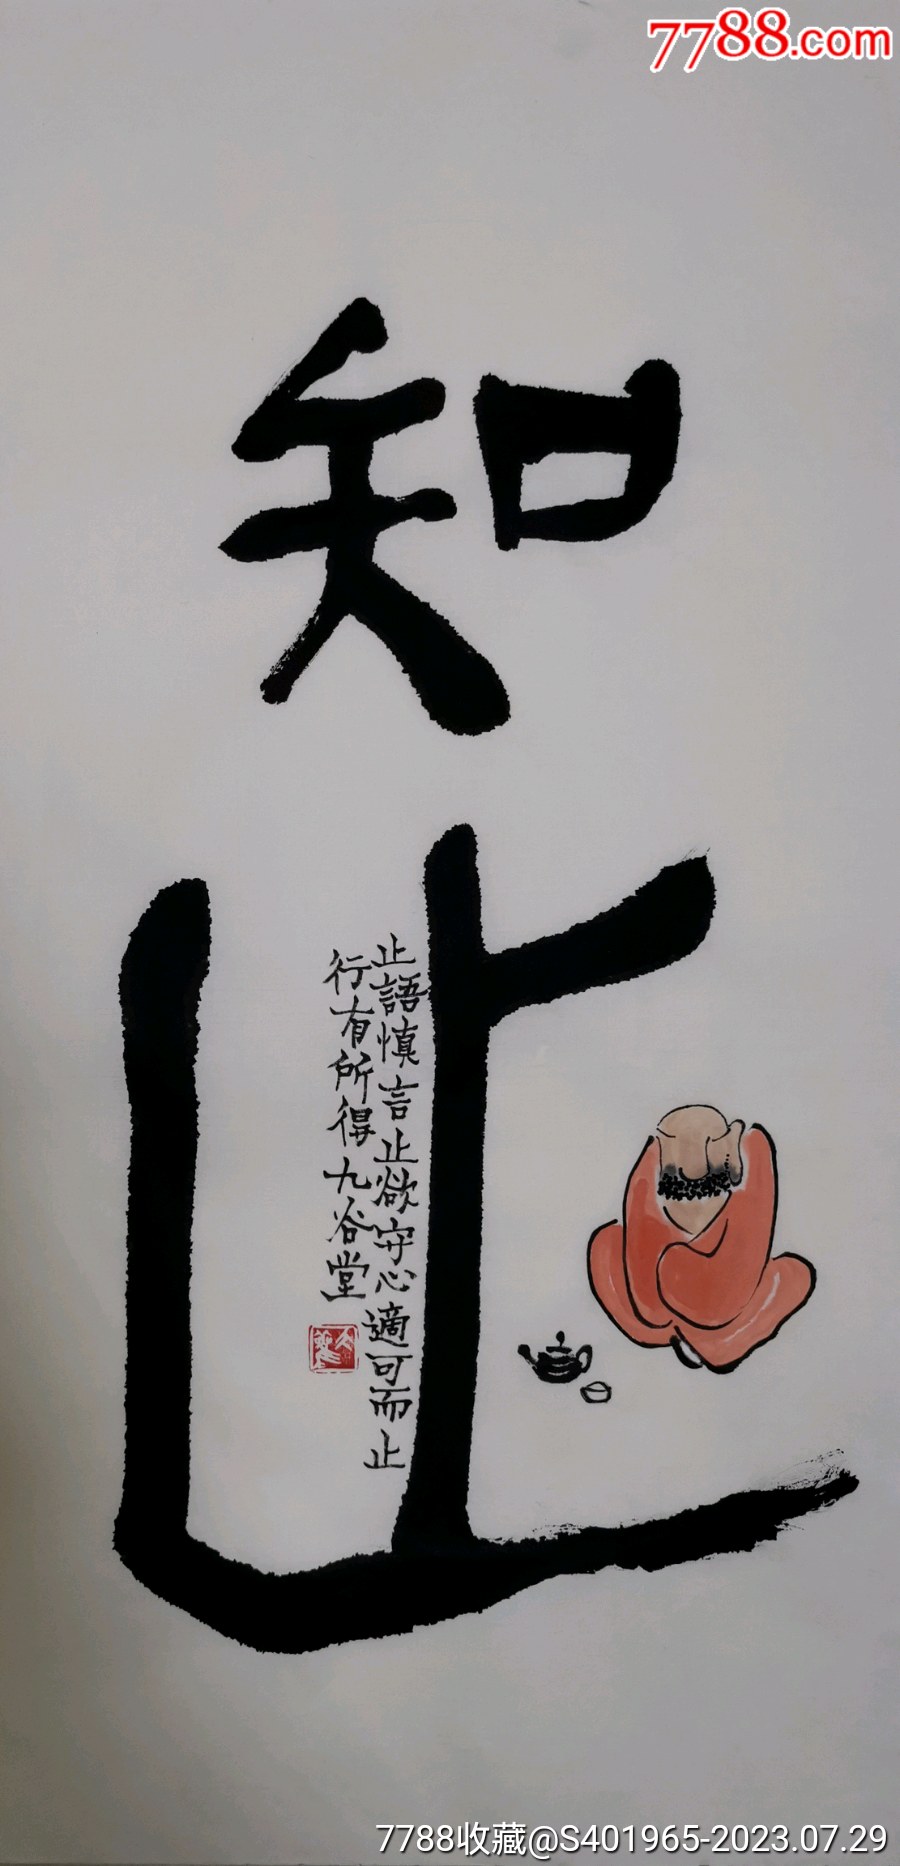 7788.com
知止
止語慎言止欲守心適可而止
行有所得九谷堂
7788收藏@S401965-2023.07.29